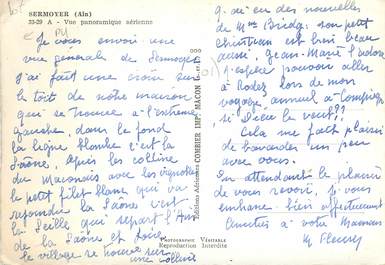 SERMOYER (Ain)
33-29 A - Vue panoramique aérienne
Je vous envoie une
vue générale de Sermoyer
j'ai fait une croix sur
le toit de notre maison
qui se trouve à l'extrême
gauche, dans le fond
la ligne blanche c'est la
Saône, puis les collines
du Maconnais avec les vignobles
le petit filet blanc qui va
rejoindre la Saône c'est
la Seille qui sépare l'Ain
de la Saône et Loire
le village se trouve sur
une colline
Editions Aériennes COMBIER IMP. MACON
PHOTOGRAPHIE VÉRITABLE
Reproduction Interdite
j'ai eu des nouvelles
de Mme son petit
Christian est bien beau
aussi, Jean-Marie l'adore
J'espère pouvoir aller
à Rodez lors de mon
voyage annuel à
si Dieu le veut!!
Cela me fait plaisir
de bavarder un peu
avec vous.
En attendant le plaisir
de vous revoir, je vous
embrasse bien affectueusement
Amitiés à votre Maman
M.